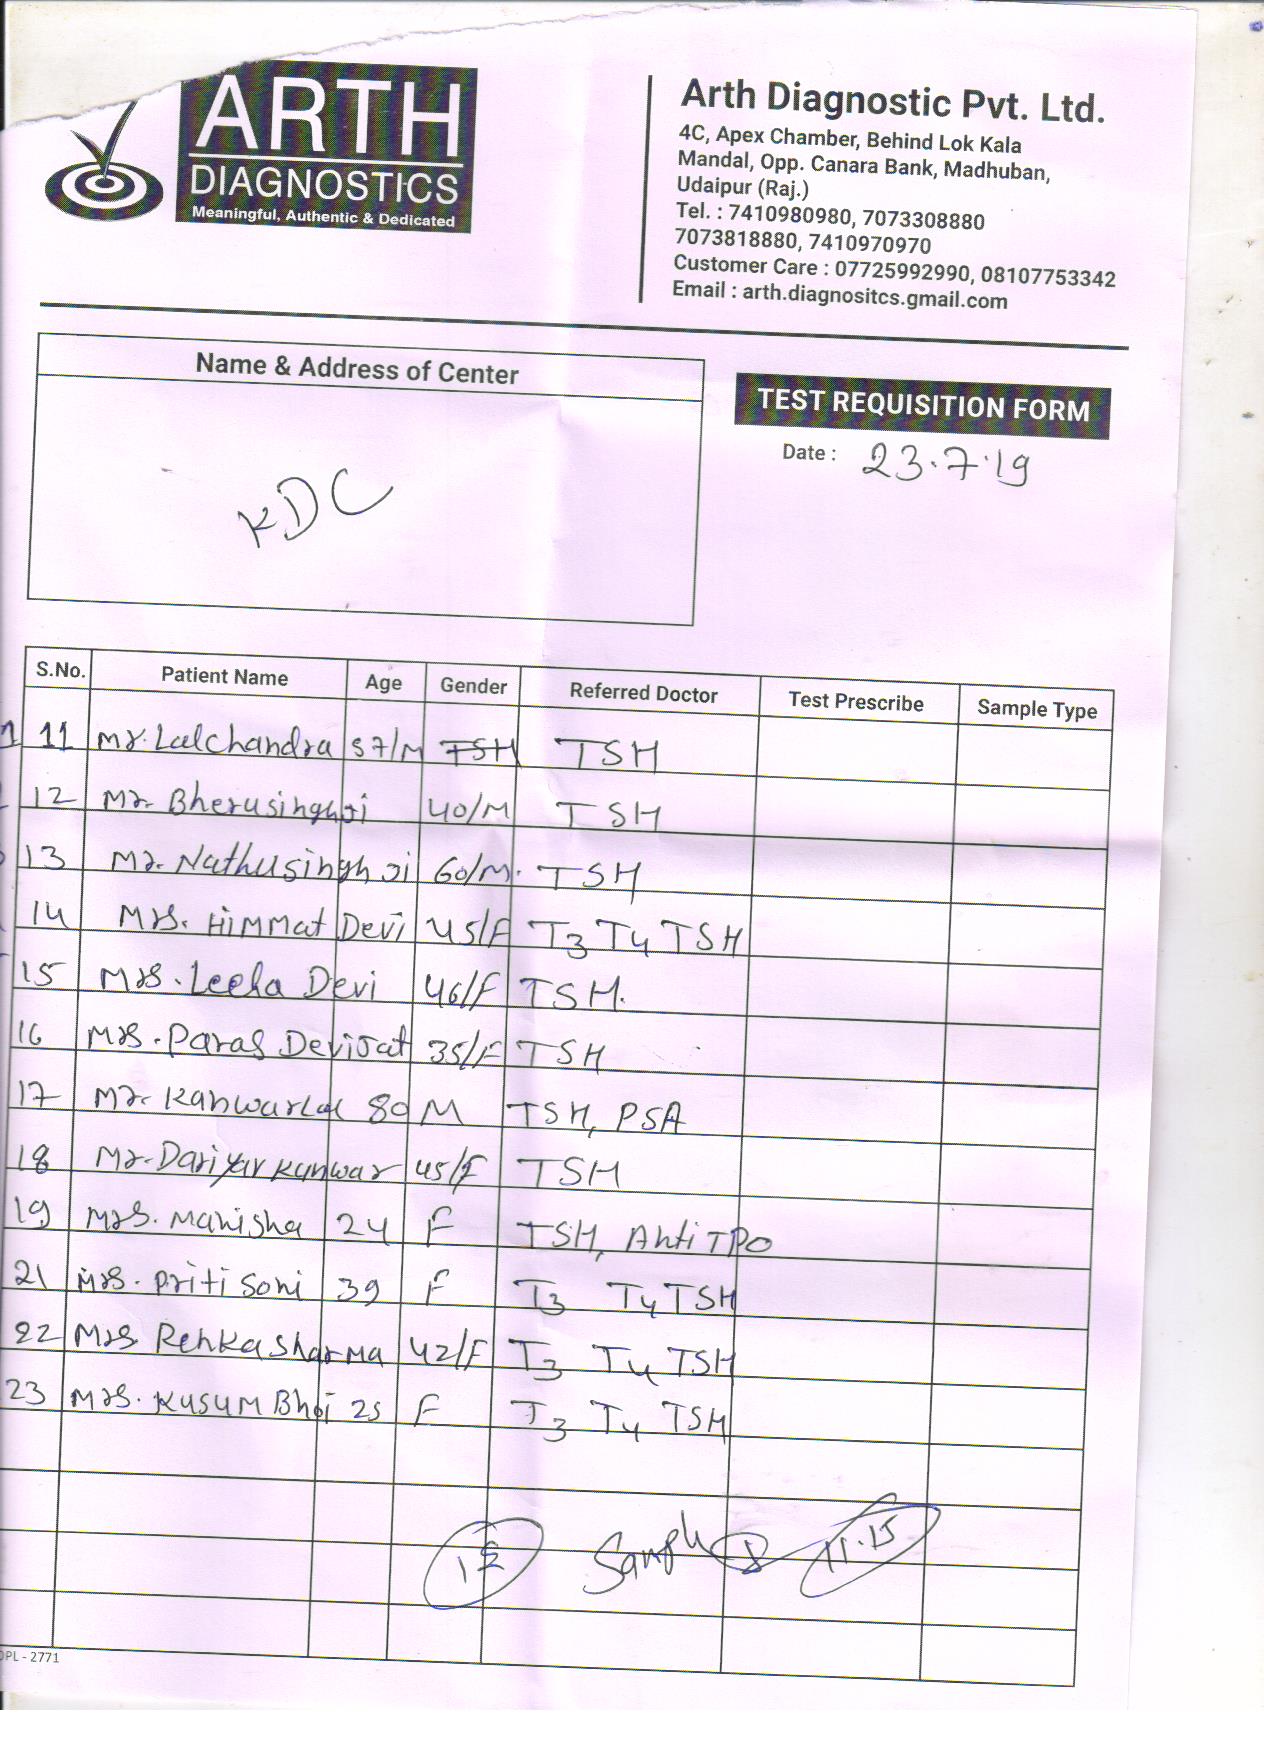 ARTH
DIAGNOSTICS
Meaningful, Authentic & Dedicated
Arth Diagnostic Pvt. Ltd.
4C, Apex Chamber, Behind Lok Kala
Mandal, Opp. Canara Bank, Madhuban,
Udaipur (Raj.)
Tel. : 7410980980, 7073308880
7073818880, 7410970970
Customer Care : 07725992990, 08107753342
Email : arth.diagnositcs.gmail.com
Name & Address of Center
KDC
TEST REQUISITION FORM
Date : 23.7.19
S.No. Patient Name Age Gender Referred Doctor Test Prescribe Sample Type
11 Mr. Lalchandra 57/M TSH TSH
12 Mr. Bherusinghji 40/M TSH
13 Mr. Nathusinghji 60/M. TSH
14 Mrs. Himmat Devi 45/F T3 T4 TSH
15 Mrs. Leela Devi 46/F TSH.
16 Mrs. Paras Devi Jat 35/F TSH
17 Mr. Kanwarlal 80 M TSH, PSA
18 Mr. Dariyav Kunwar 45/F TSH
19 Mrs. Manisha 24 F TSH, Anti TPO
21 Mrs. Priti Soni 39 F T3 T4 TSH
22 Mrs. Renka Sharma 42/F T3 T4 TSH
23 Mrs. Kusum Bhoi 25 F T3 T4 TSH
12 Sample 11.15
DPL - 2771